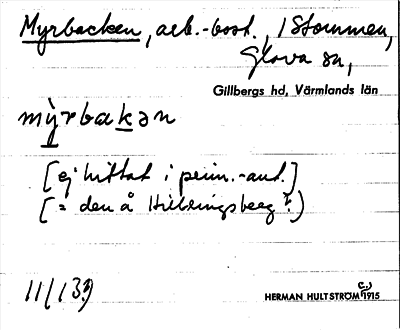 Myrbacken, arb.-bost., /Stommen,
Glava sn,
Gillbergs hd, Värmlands län
mỳrbakən
[ej hittat i prim.-ant.]
[= den å Hilleringsberg?]
11/13?
HERMAN HULTSTRÖM 1915